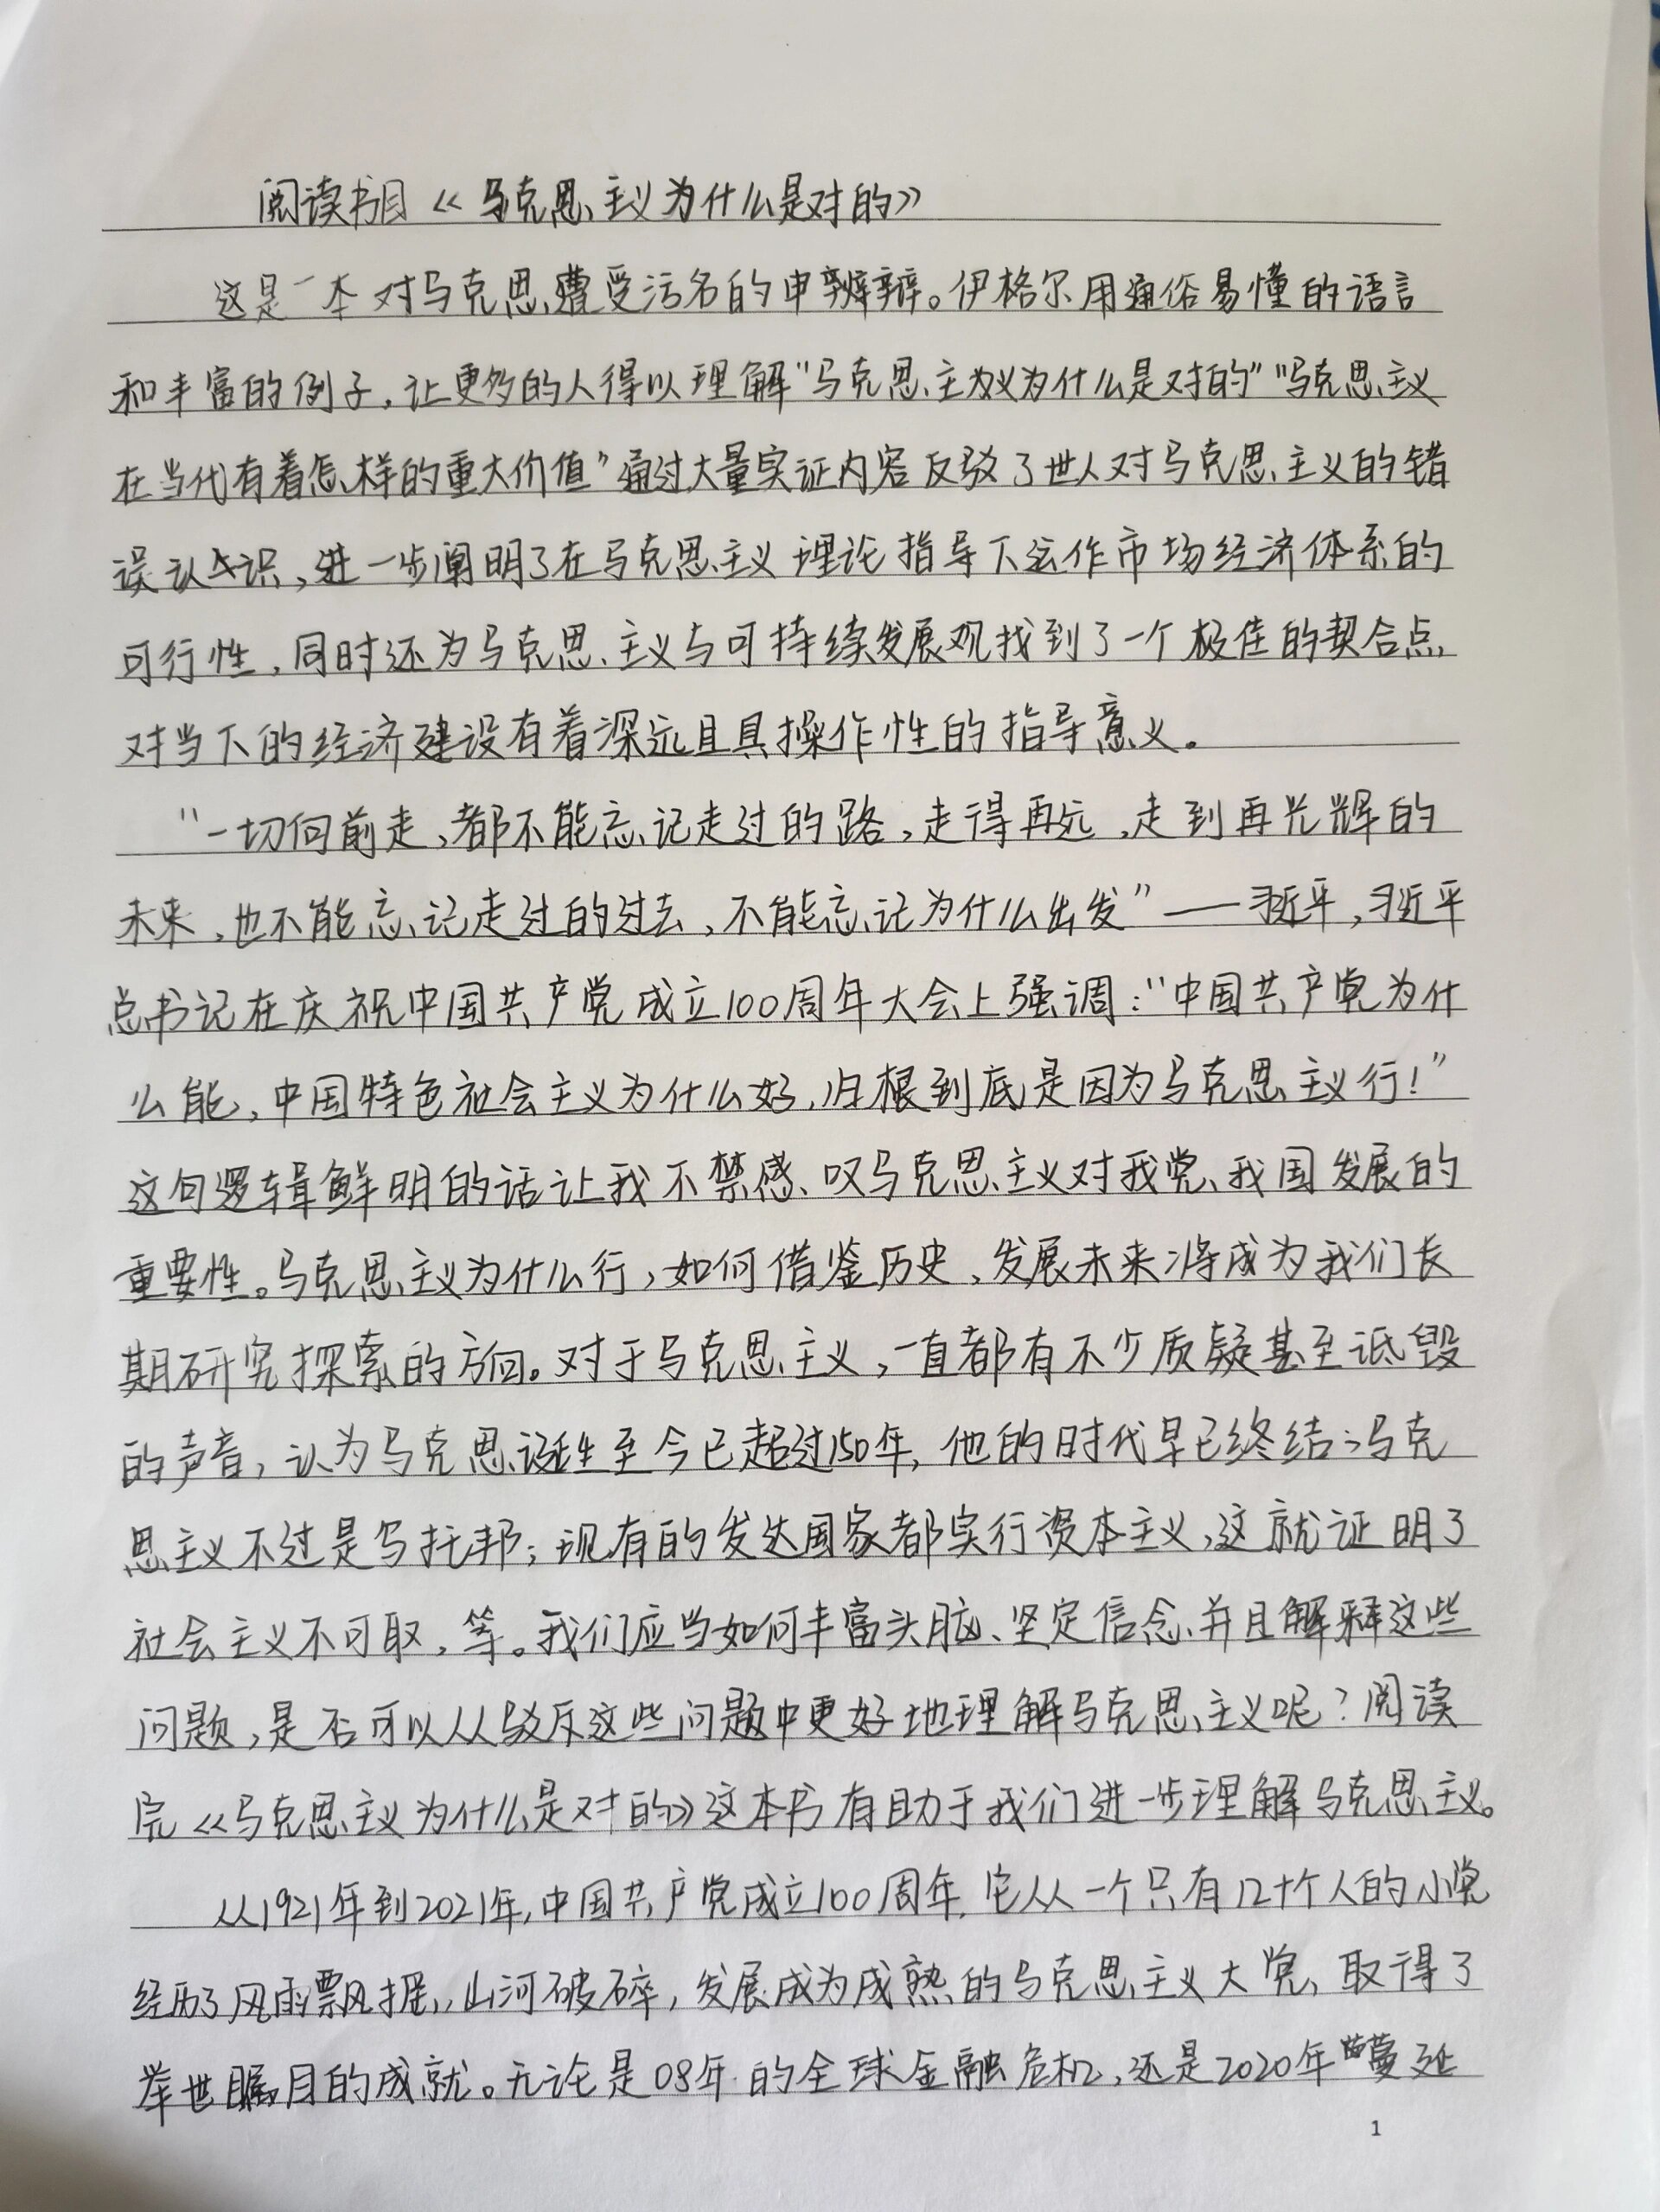 阅读书目《马克思主义为什么是对的》
这是一本对马克思遭受污名的申辩。伊格尔用通俗易懂的语言
和丰富的例子，让更多的人得以理解“马克思主义为什么是对的”“马克思主义
在当代有着怎样的重大价值”通过大量实证内容反驳了世人对马克思主义的错
误认识，进一步阐明了在马克思主义理论指导下运作市场经济体系的
可行性，同时还为马克思主义与可持续发展观找到了一个极佳的契合点，
对当下的经济建设有着深远且具操作性的指导意义。
“一切向前走，都不能忘记走过的路，走得再远，走到再光辉的
未来，也不能忘记走过的过去，不能忘记为什么出发”——习近平，习近平
总书记在庆祝中国共产党成立100周年大会上强调：“中国共产党为什
么能，中国特色社会主义为什么好，归根到底是因为马克思主义行！”
这句逻辑鲜明的话让我不禁感叹马克思主义对我党、我国发展的
重要性。马克思主义为什么行，如何借鉴历史，发展未来将成为我们长
期研究探索的方向。对于马克思主义，一直都有不少质疑甚至诋毁
的声音，认为马克思诞生至今已超过150年，他的时代早已终结；马克
思主义不过是乌托邦；现有的发达国家都实行资本主义，这就证明了
社会主义不可取，等。我们应当如何丰富头脑、坚定信念并且解释这些
问题，是否可以从驳斥这些问题中更好地理解马克思主义呢？阅读
完《马克思主义为什么是对的》这本书有助于我们进一步理解马克思主义。
从1921年到2021年，中国共产党成立100周年，它从一个只有12十个人的小党
经历了风雨飘摇，山河破碎，发展成为成熟的马克思主义大党，取得了
举世瞩目的成就。无论是08年的全球金融危机，还是2020年蔓延
1